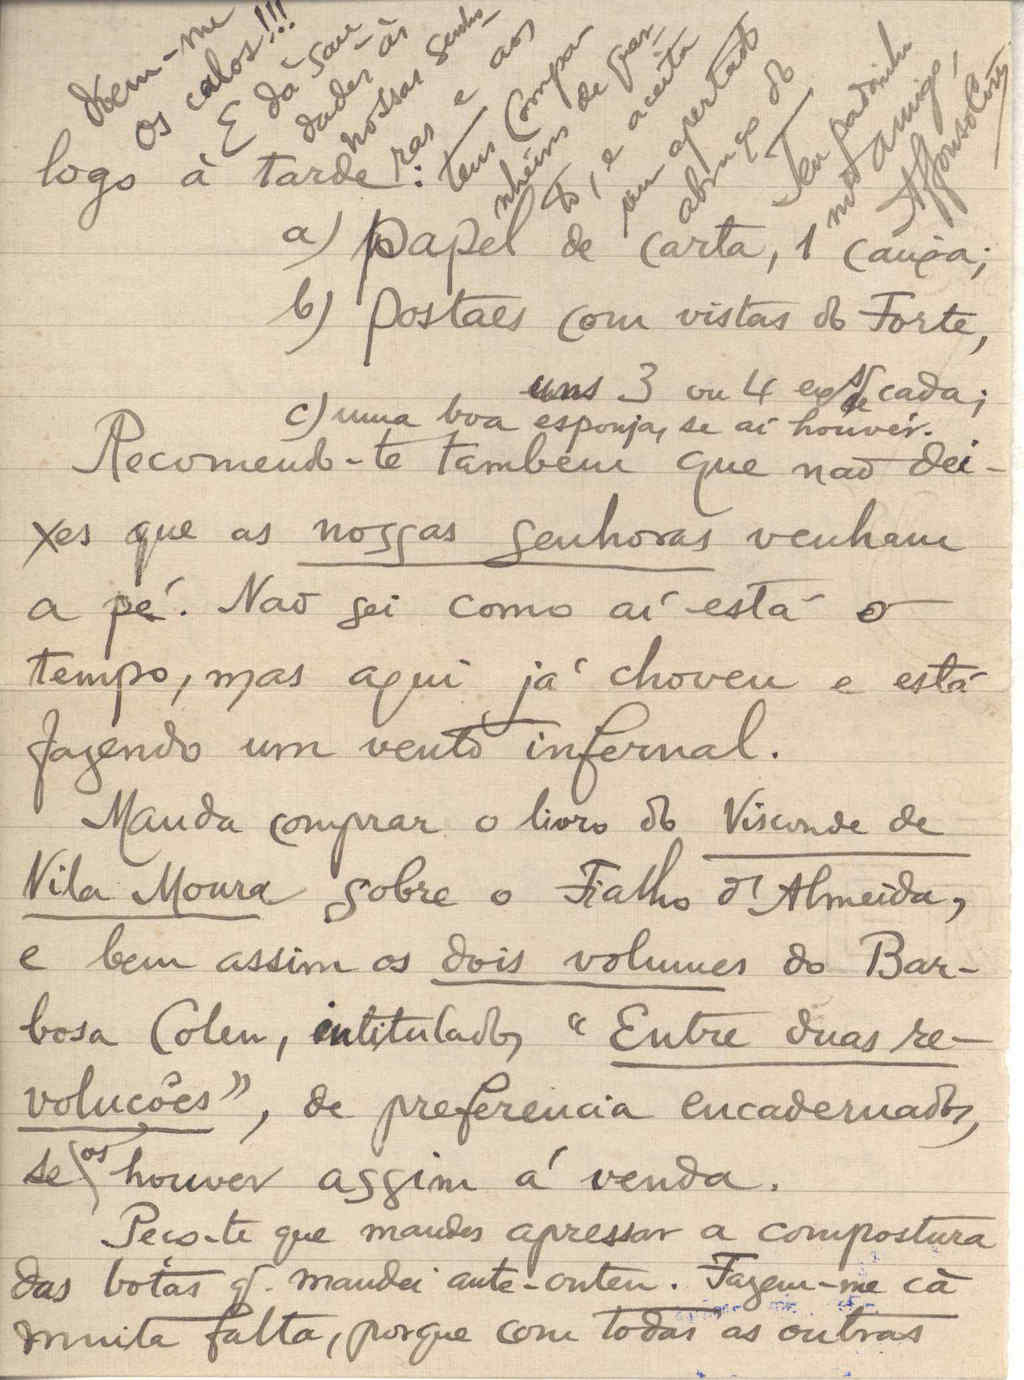 logo à tarde:
a) papel de carta, 1 caixa;
b) postaes com vistas do Forte,
uns 3 ou 4 ex. de cada;
c) uma boa esponja, se aí houvér.
Recomendo-te também que não dei-
xes que as nossas senhoras venham
a pé. Não sei como aí está o
tempo, mas aqui já choveu e está
fazendo um vento infernal.
Manda comprar o livro do Visconde de
Vila Moura sobre o Fialho d'Almeida,
e bem assim os dois volumes do Bar-
bosa Colen, intitulados "Entre duas re-
voluções", de preferencia encadernados,
se os houver assim á venda.
Peço-te que mandes apressar a compostura
das botas q. mandei ante-ontem. Fazem-me cá
muita falta, porque com todas as outras
doem-me
os calos!!!
E dá sau-
dades às
nossas senho-
ras e aos
teus compa-
nheiros de quar-
to, e aceita
um apertado
abraço do
Teu padrinho
e mto amigo,
Affonso